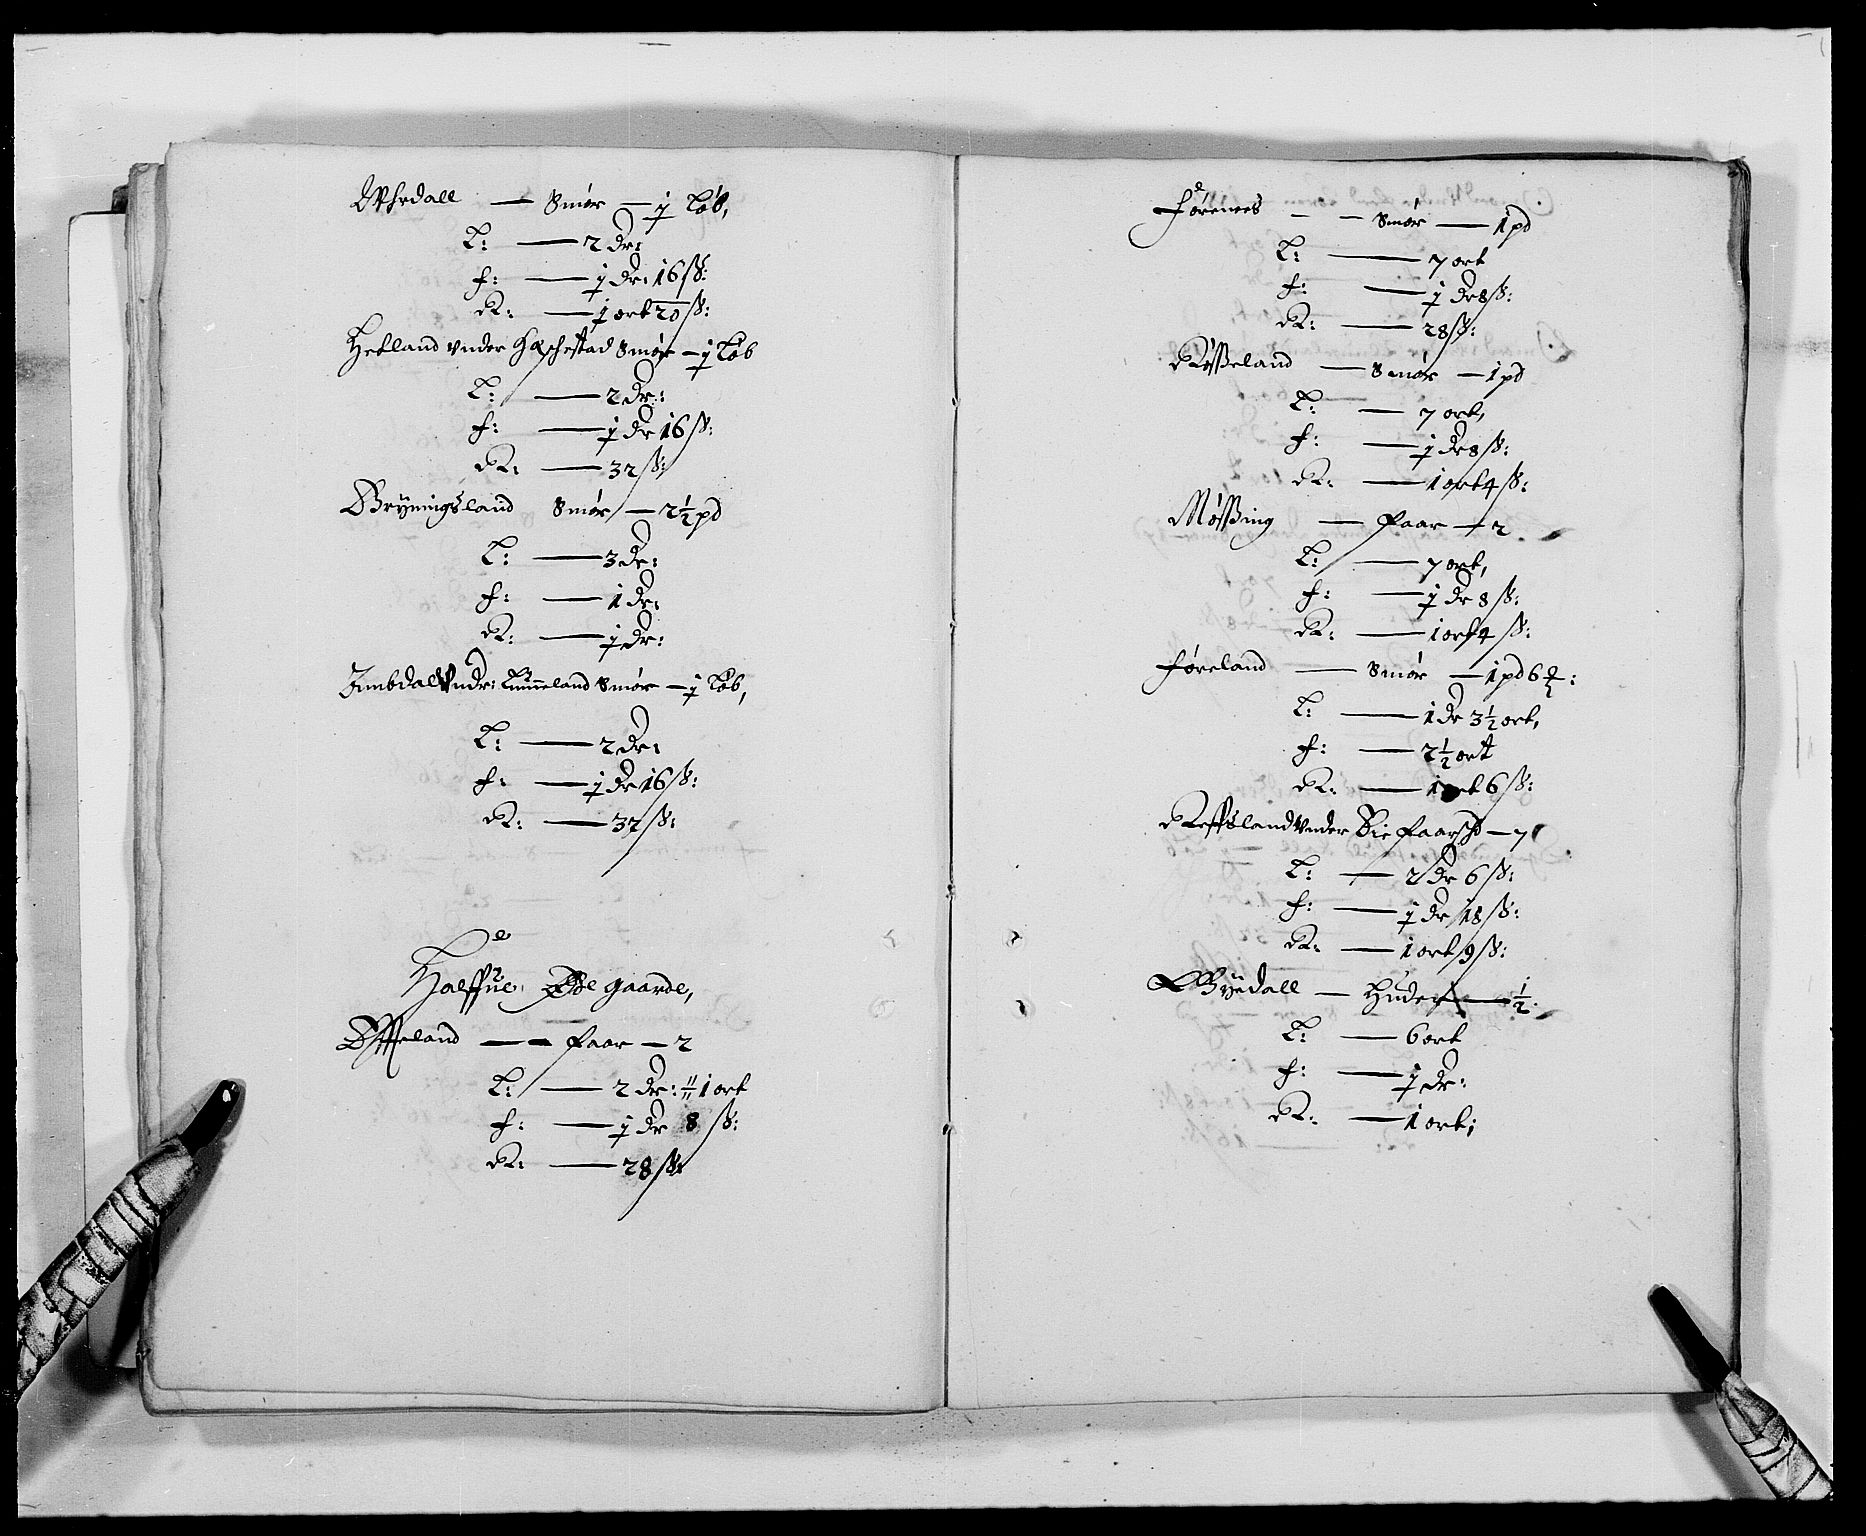 Opsedall — Smør — ½ Løb,
L: — 2 dr:
f: — ½ dr: 16 ß:
R: — 1 ort 20 ß:
Hetland vnder Hæschestad Smør — ½ Løb
L: — 2 dr:
f: — ½ dr 16 ß:
R: — 32 ß:
Bryningsland Smør — 2½ pd
L: — 3 dr:
f: — 1 dr:
R: — ½ dr:
Jnnbdal Vndr: Lunneland Smør — ½ Løb,
L: — 2 dr:
f: — ½ dr 16 ß:
R: — 32 ß:
Halffue Øde gaarde,
Øffeland — faar — 2
L: — 2 dr: 1 ort
f: — ½ dr 8 ß:
R: — 28 ß:
Førenees — Smør — 1 pd
L: — 7 ort
f: — ½ dr 8 ß:
R: — 28 ß:
Røsseland — Smør — 1 pd
L: — 7 ort,
f: — ½ dr 8 ß:
R: — 1 ort 4 ß:
Møssing — faar — 2
L: — 7 ort,
f: — ½ dr 8 ß:
R: — 1 ort 4 ß:
Føreland — Smør — 1 pd 6
L: — 1 dr 3½ ort,
f: — 2½ ort
R: — 1 ort 6 ß:
Reffsland Vnder Bie faarschd — 7
L: — 2 dr 6 ß:
f: — ½ dr 18 ß:
R: — 1 ort 9 ß:
Øbyedall — Huder — ½
L: — 6 ort
f: — ½ dr:
R: — 1 ort;